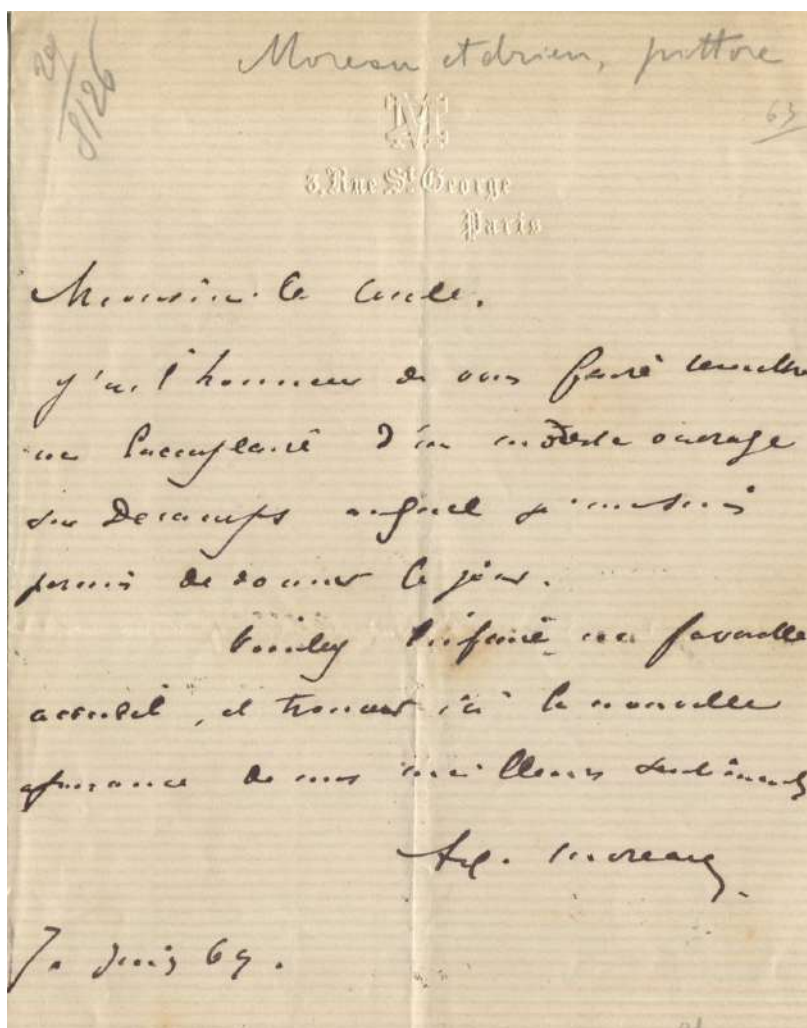 29/8/26
Moreau Adrien, pittore
63
M
3. Rue St. George
Paris
Monsieur le Comte.
J'ai l'honneur de vous faire remettre
un exemplaire d'un modeste ouvrage
sur Decamps auquel je me suis
permis de donner le jour.
Veuillez lui faire un favorable
accueil, et trouver ici la nouvelle
assurance de mes meilleurs sentiments
Ad. Moreau.
7. Juin 69.